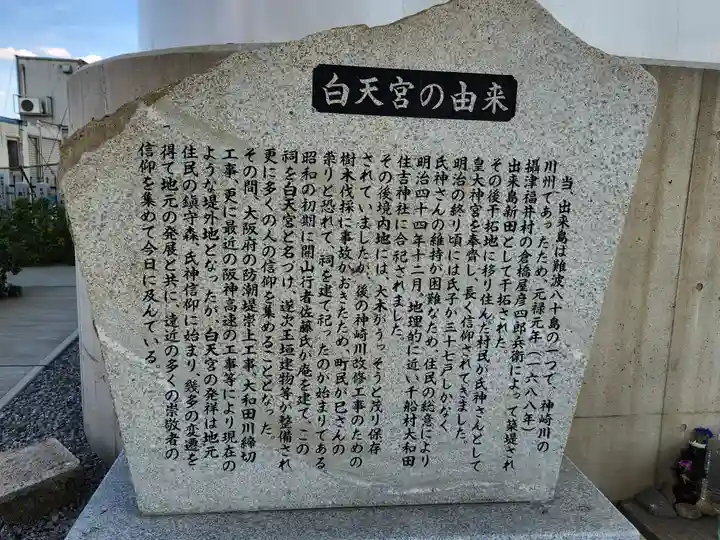 白天宮の由来
当、出来島は難波八十島の一つで、神崎川の
川州であったため、元禄元年（一六八八年）
攝津福井村の倉橋屋彦四郎兵衛によって築堤され
出来島新田として干拓された。
その後干拓地に移り住んだ村民が氏神さんとして
皇大神宮を奉齋し、長く信仰されてきました。
明治の終り頃には氏子が三十七戸しかなく、
氏神さんの維持が困難なため、住民の総意により
明治四十四年十二月、地理的に近い千船村大和田
住吉神社に合祀されました。
その後境内地には、大木がうっそうと茂り保存
されていましたが、後の神崎川改修工事のための
樹木伐採に事故がおきたため、町民が巳さんの
祟りと恐れて、祠を建て祀ったのが始まりである
昭和の初期に開山行者佐藤氏が庵を建て、この
祠を白天宮と名づけ、逐次玉垣建物等が整備され
更に多くの人の信仰を集めることとなった。
その間、大阪府の防潮堤嵩上工事、大和田川締切
工事、更に最近の阪神高速の工事等により現在の
ような堤外地となったが、白天宮の発祥は地元
住民の鎮守森、氏神信仰に始まり、幾多の変遷を
得て地元の発展と共に、遠近の多くの崇敬者の
信仰を集めて今日に及んでいる。